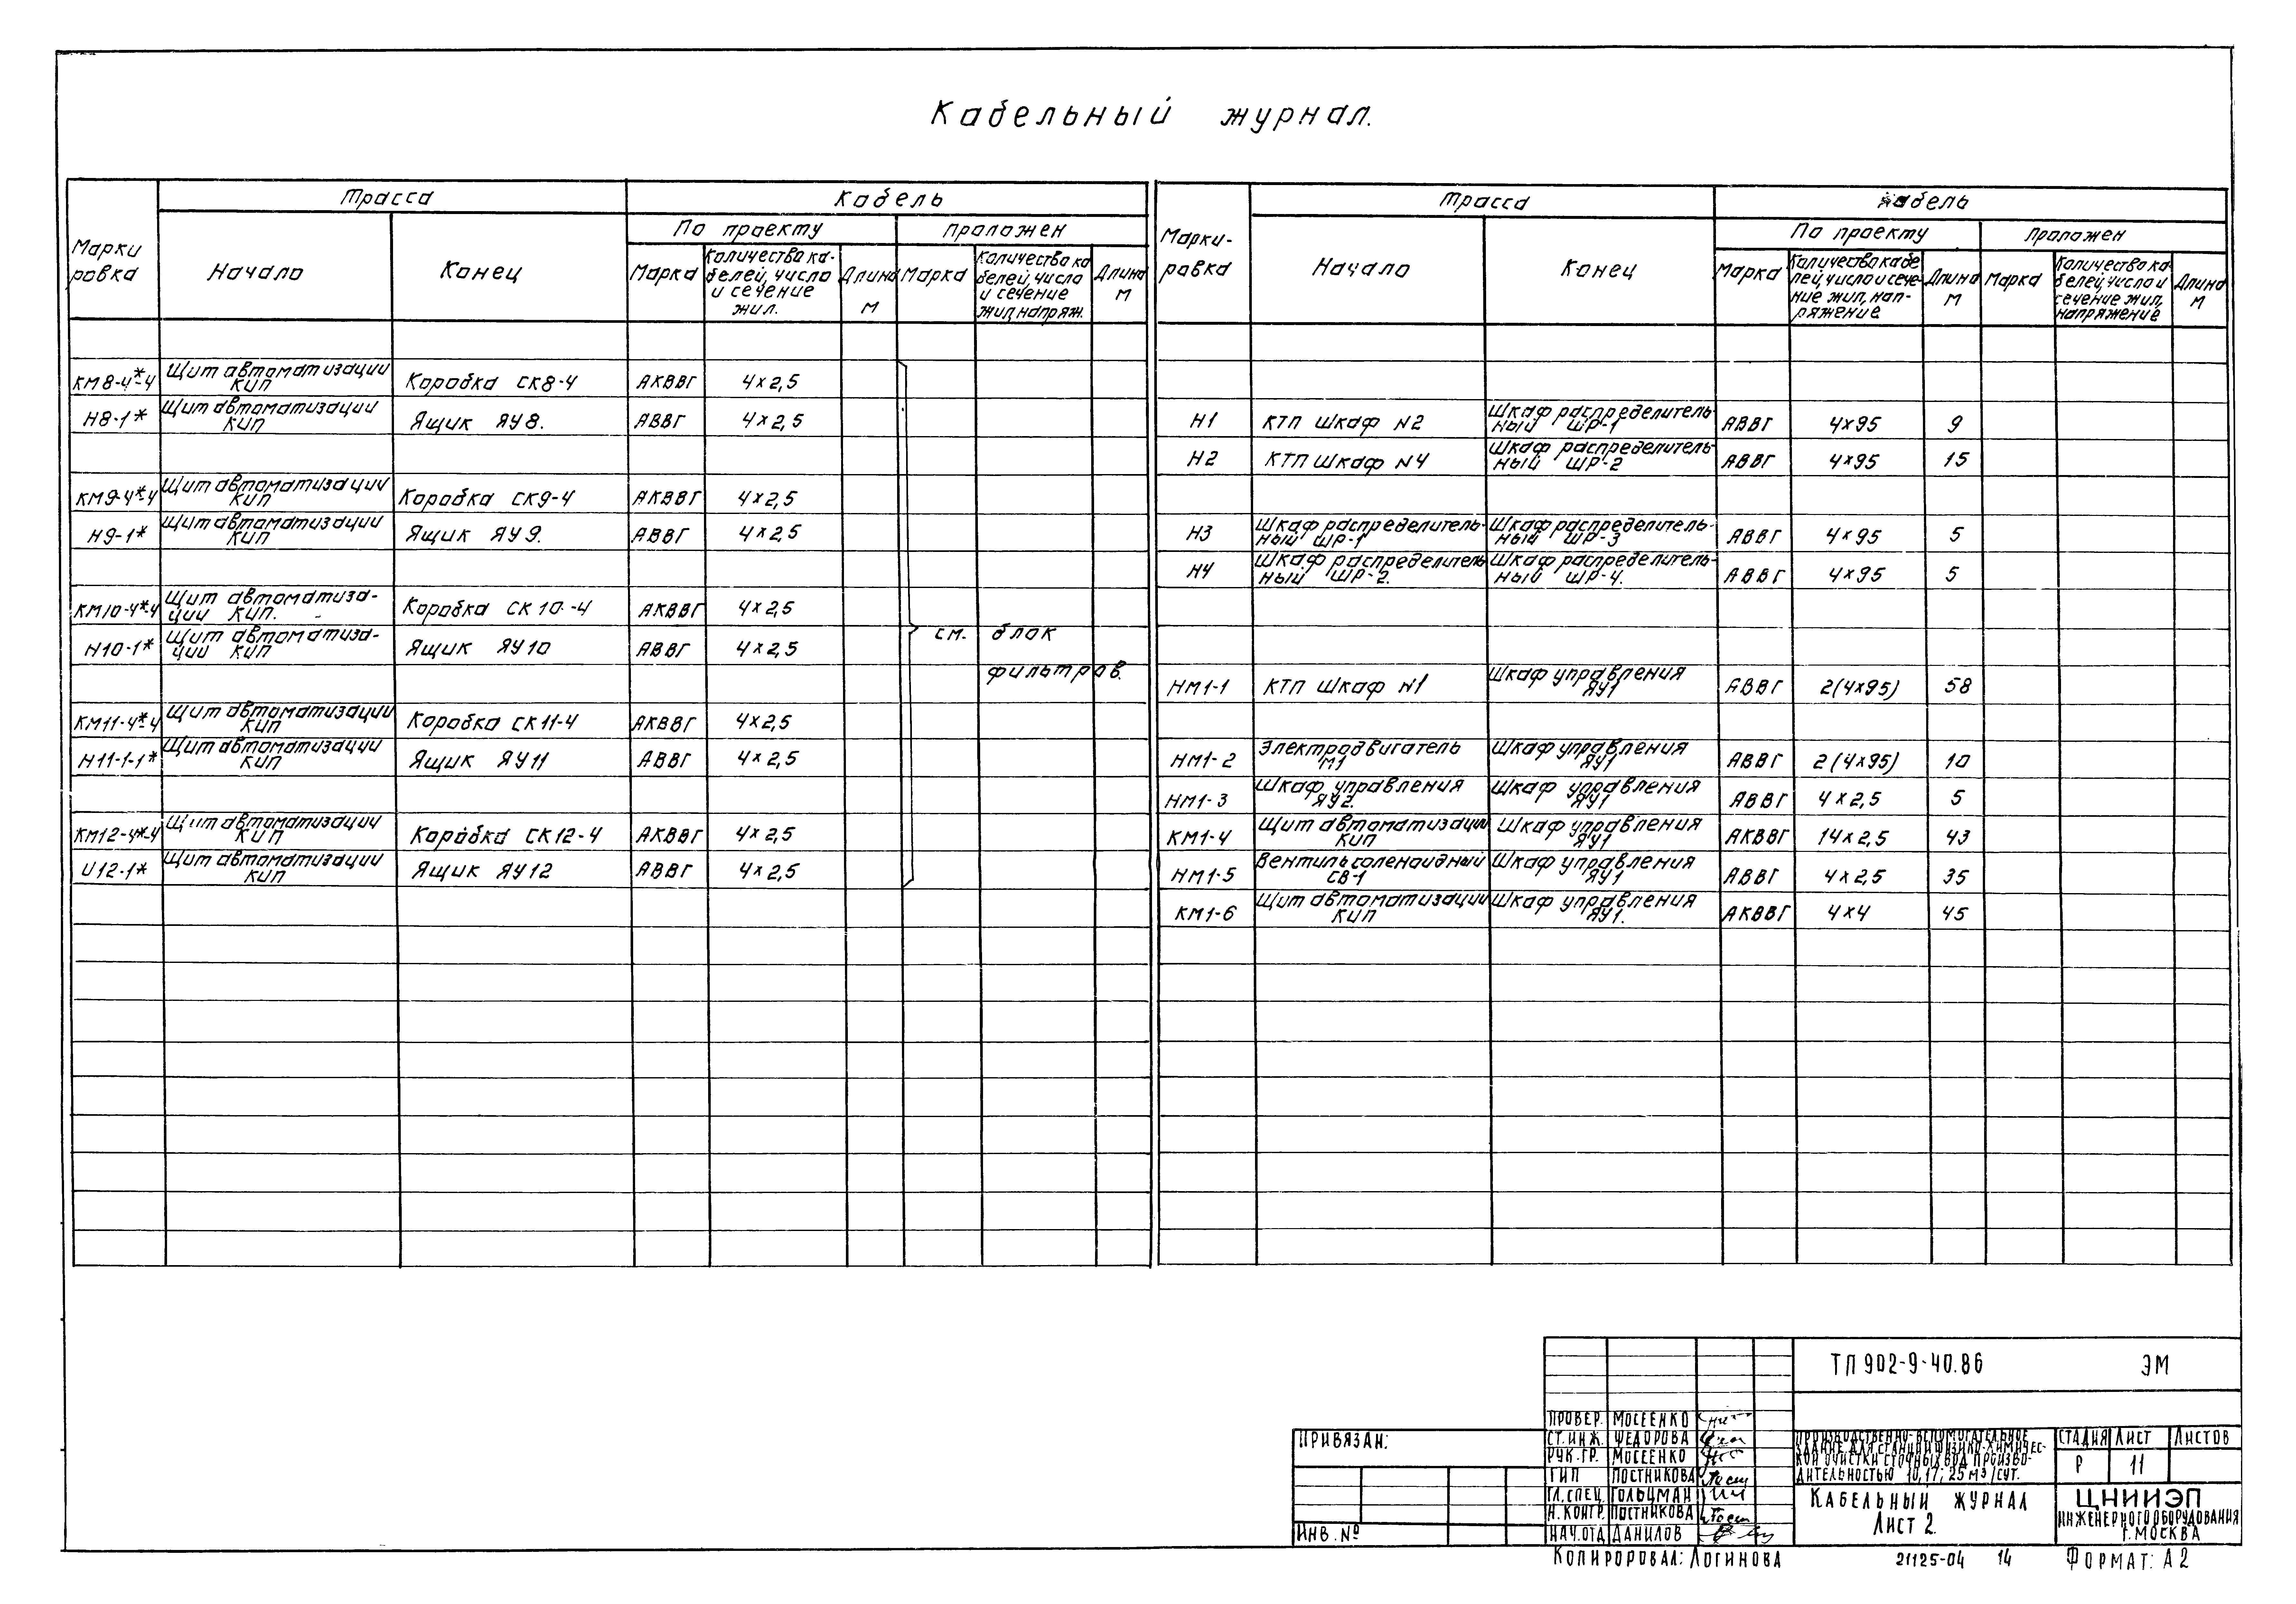 Кабельный журнал.
Марки
ровка
Трасса
Кабель
Начало
Конец
По проекту
Проложен
Марка
Количество ка-
белей, число
и сечение
жил.
Длина
м
Марка
Количество ка
белей, число
и сечение
жил, напряж.
Длина
м
КМ8-4*-4 Щит автоматизации КИП Коробка СК8-4 АКВВГ 4х2,5
Н8-1* Щит автоматизации КИП Ящик ЯУ8. АВВГ 4х2,5
КМ9-4*-4 Щит автоматизации КИП Коробка СК9-4 АКВВГ 4х2,5
Н9-1* Щит автоматизации КИП Ящик ЯУ9. АВВГ 4х2,5
КМ10-4*-4 Щит автоматиза-
ции КИП. Коробка СК10.-4 АКВВГ 4х2,5
Н10-1* Щит автоматиза-
ции КИП Ящик ЯУ10 АВВГ 4х2,5
см. блок
фильтров.
КМ11-4*-4 Щит автоматизации КИП Коробка СК11-4 АКВВГ 4х2,5
Н11-1-1* Щит автоматизации КИП Ящик ЯУ11 АВВГ 4х2,5
КМ12-4*-4 Щит автоматизации КИП Коробка СК12-4 АКВВГ 4х2,5
U12-1* Щит автоматизации КИП Ящик ЯУ12 АВВГ 4х2,5
Марки-
ровка
Трасса
Кабель
Начало
Конец
По проекту
Проложен
Марка
Количество кабе
лей, число и сече-
ние жил, нап-
ряжение
Длина
м
Марка
Количество ка-
белей, число и
сечение жил,
напряжение
Длина
м
Н1 КТП шкаф N2 Шкаф распределитель-
ный ШР-1 АВВГ 4х95 9
Н2 КТП шкаф N4 Шкаф распределитель-
ный ШР-2 АВВГ 4х95 15
Н3 Шкаф распределитель-
ный ШР-1 Шкаф распределитель-
ный ШР-3 АВВГ 4х95 5
Н4 Шкаф распределитель
ный ШР-2. Шкаф распределитель-
ный ШР-4. АВВГ 4х95 5
НМ1-1 КТП шкаф N1 Шкаф управления ЯУ1 АВВГ 2(4х95) 58
НМ1-2 Электродвигатель М1 Шкаф управления ЯУ1 АВВГ 2(4х95) 10
НМ1-3 Шкаф управления ЯУ2. Шкаф управления ЯУ1 АВВГ 4х2,5 5
КМ1-4 Щит автоматизации КИП Шкаф управления ЯУ1 АКВВГ 14х2,5 43
НМ1-5 Вентиль соленоидный СВ-1 Шкаф управления ЯУ1 АВВГ 4х2,5 35
КМ1-6 Щит автоматизации КИП Шкаф управления ЯУ1. АКВВГ 4х4 45
ТП 902-9-40.86 ЭМ
Привязан:
Инв. №
Провер. Мосеенко
Ст.инж. Федорова
Рук.гр. Мосеенко
ГИП Постникова
Гл.спец. Гольцман
Н.контр. Постникова
Нач.отд Данилов
Производственно-вспомогательное
здание для станции физико-химичес-
кой очистки сточных вод произво-
дительностью 10, 17; 25 м3/сут.
Стадия Лист Листов
Р 11
Кабельный журнал
Лист 2.
ЦНИИЭП
инженерного оборудования
г. Москва
Копировал: Логинова
21125-04 14
Формат: А2